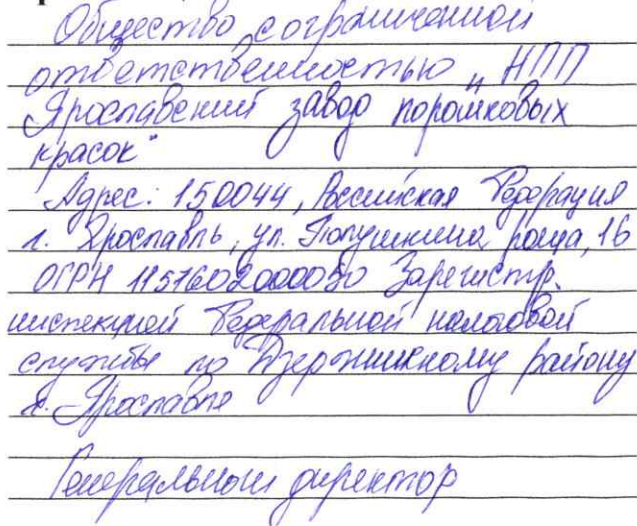 Общество с ограниченной
ответственностью "НПП
Ярославский завод порошковых
красок"
Адрес: 150044, Российская Федерация
г. Ярославль, ул. Полушкина роща, 16
ОГРН Зарегистр.
инспекцией Федеральной налоговой
службы по Дзержинскому району
г. Ярославля
Генеральный директор